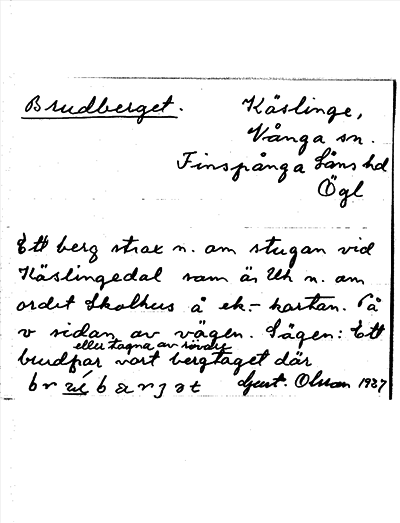 Brudberget.
Käslinge,
Vånga sn.
Finspånga läns hd
Ögl
Ett berg strax n. om stugan vid
Käslingedal som är Uh n. om
ordet Skolhus å ek.-kartan. På
v sidan av vägen. Sägen: Ett
eller tagna av rövare
brudpar vart bergtaget där
Gust. Olsson 1937